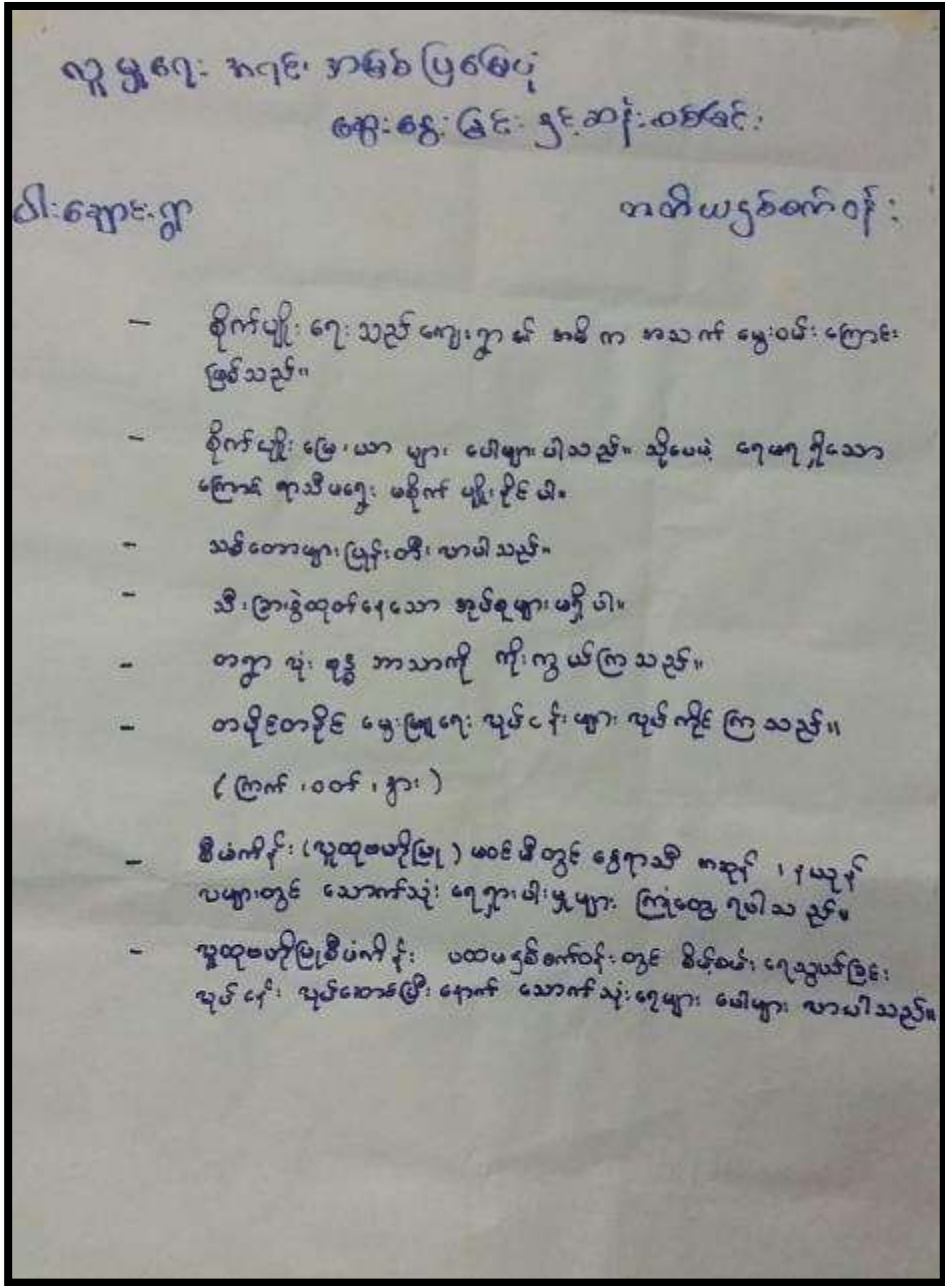 လူမှုရေး အရင်းအမြစ်ပြမြေပုံ
ဆွေးနွေးခြင်း နှင့် ဆန်းစစ်ခြင်း
ဝါးချောင်းရွာ တတိယနှစ်စက်ဝန်း
- စိုက်ပျိုးရေးသည် ကျေးရွာ၏ အဓိက အသက်မွေးဝမ်းကြောင်း
ဖြစ်သည်။
- စိုက်ပျိုးမြေ၊ ယာများ ပေါများပါသည်။ သို့ပေမဲ့ ရေမရရှိသော
ကြောင့် ရာသီမရွေး မစိုက်ပျိုးနိုင်ပါ။
- သစ်တောများပြုန်းတီးလာပါသည်။
- သီးခြားခွဲထုတ်နေသော အုပ်စုများမရှိပါ။
- တရွာလုံး ဗုဒ္ဓဘာသာကို ကိုးကွယ်ကြသည်။
- တပိုင်တနိုင် မွေးမြူရေး လုပ်ငန်းများ လုပ်ကိုင်ကြသည်။
(ကြက်၊ ဝက်၊ နွား)
- စီမံကိန်း (လူထုဗဟိုပြု) မဝင်မီတွင် နွေရာသီ ကဆုန်၊ နယုန်
လများတွင် သောက်သုံးရေရှားပါးမှုများ ကြုံတွေ့ရပါသည်။
- လူထုဗဟိုပြုစီမံကိန်း ပထမနှစ်စက်ဝန်းတွင် စိမ့်စမ်းရေသွယ်ခြင်း
လုပ်ငန်း လုပ်ဆောင်ပြီးနောက် သောက်သုံးရေများ ပေါများလာပါသည်။